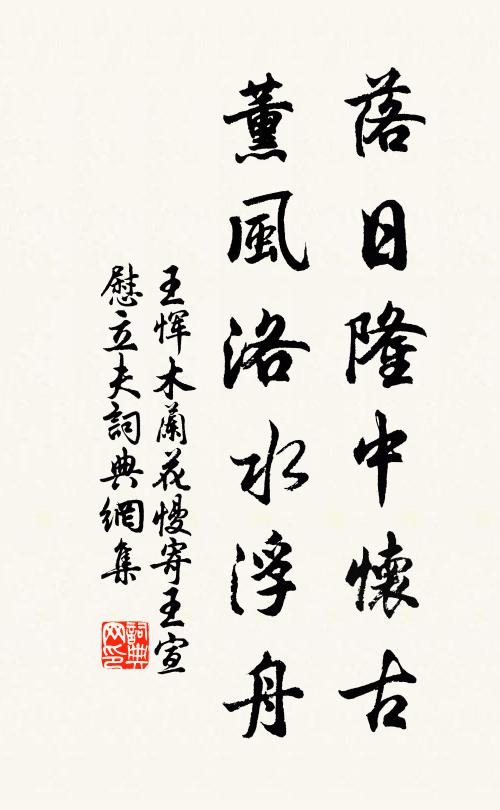 落日隆中懷古
薰風洛水浮舟
王惲木蘭花慢寄王宣
慰立夫詞典網集
詞典
网印